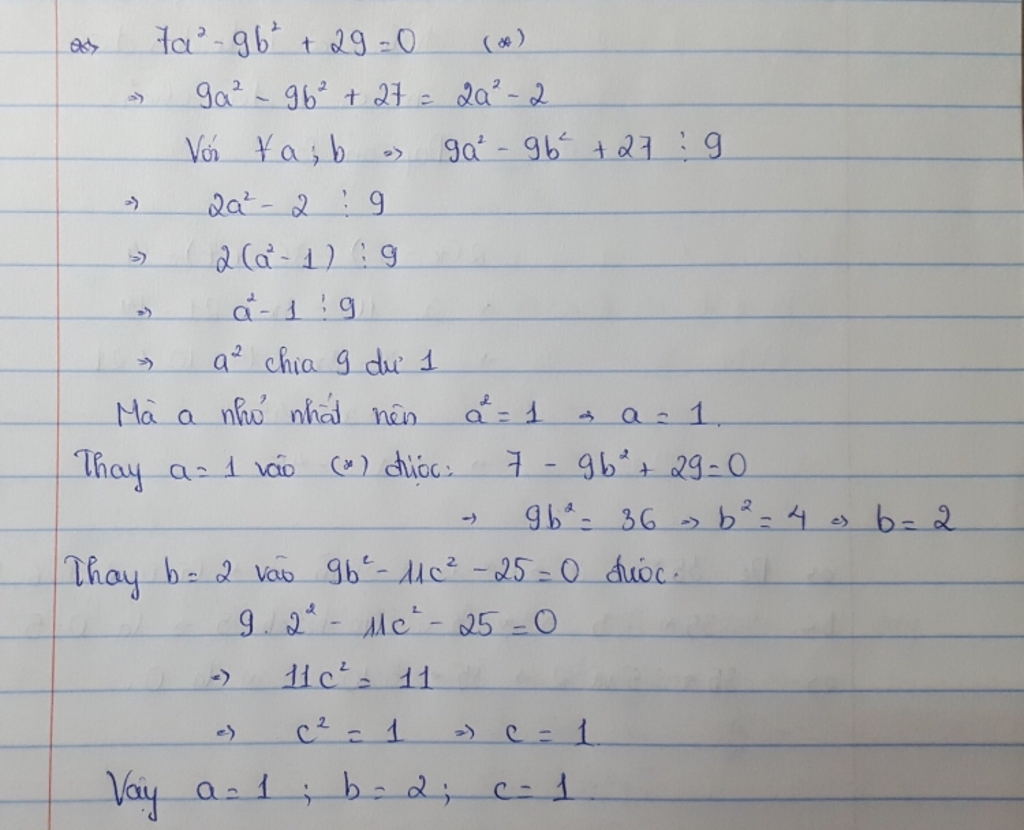 ⇔ 7a² - 9b² + 29 = 0 (*)
⇒ 9a² - 9b² + 27 = 2a² - 2
Với ∀a ; b ⇒ 9a² - 9b² + 27 ⋮ 9
⇒ 2a² - 2 ⋮ 9
⇒ 2(a² - 1) ⋮ 9
⇒ a² - 1 ⋮ 9
⇒ a² chia 9 dư 1
Mà a nhỏ nhất nên a² = 1 ⇒ a = 1.
Thay a = 1 vào (*) được: 7 - 9b² + 29 = 0
⇒ 9b² = 36 ⇒ b² = 4 ⇒ b = 2
Thay b = 2 vào 9b² - 11c² - 25 = 0 được.
9. 2² - 11c² - 25 = 0
⇒ 11c² = 11
⇒ c² = 1 ⇒ c = 1.
Vậy a = 1 ; b = 2 ; c = 1.